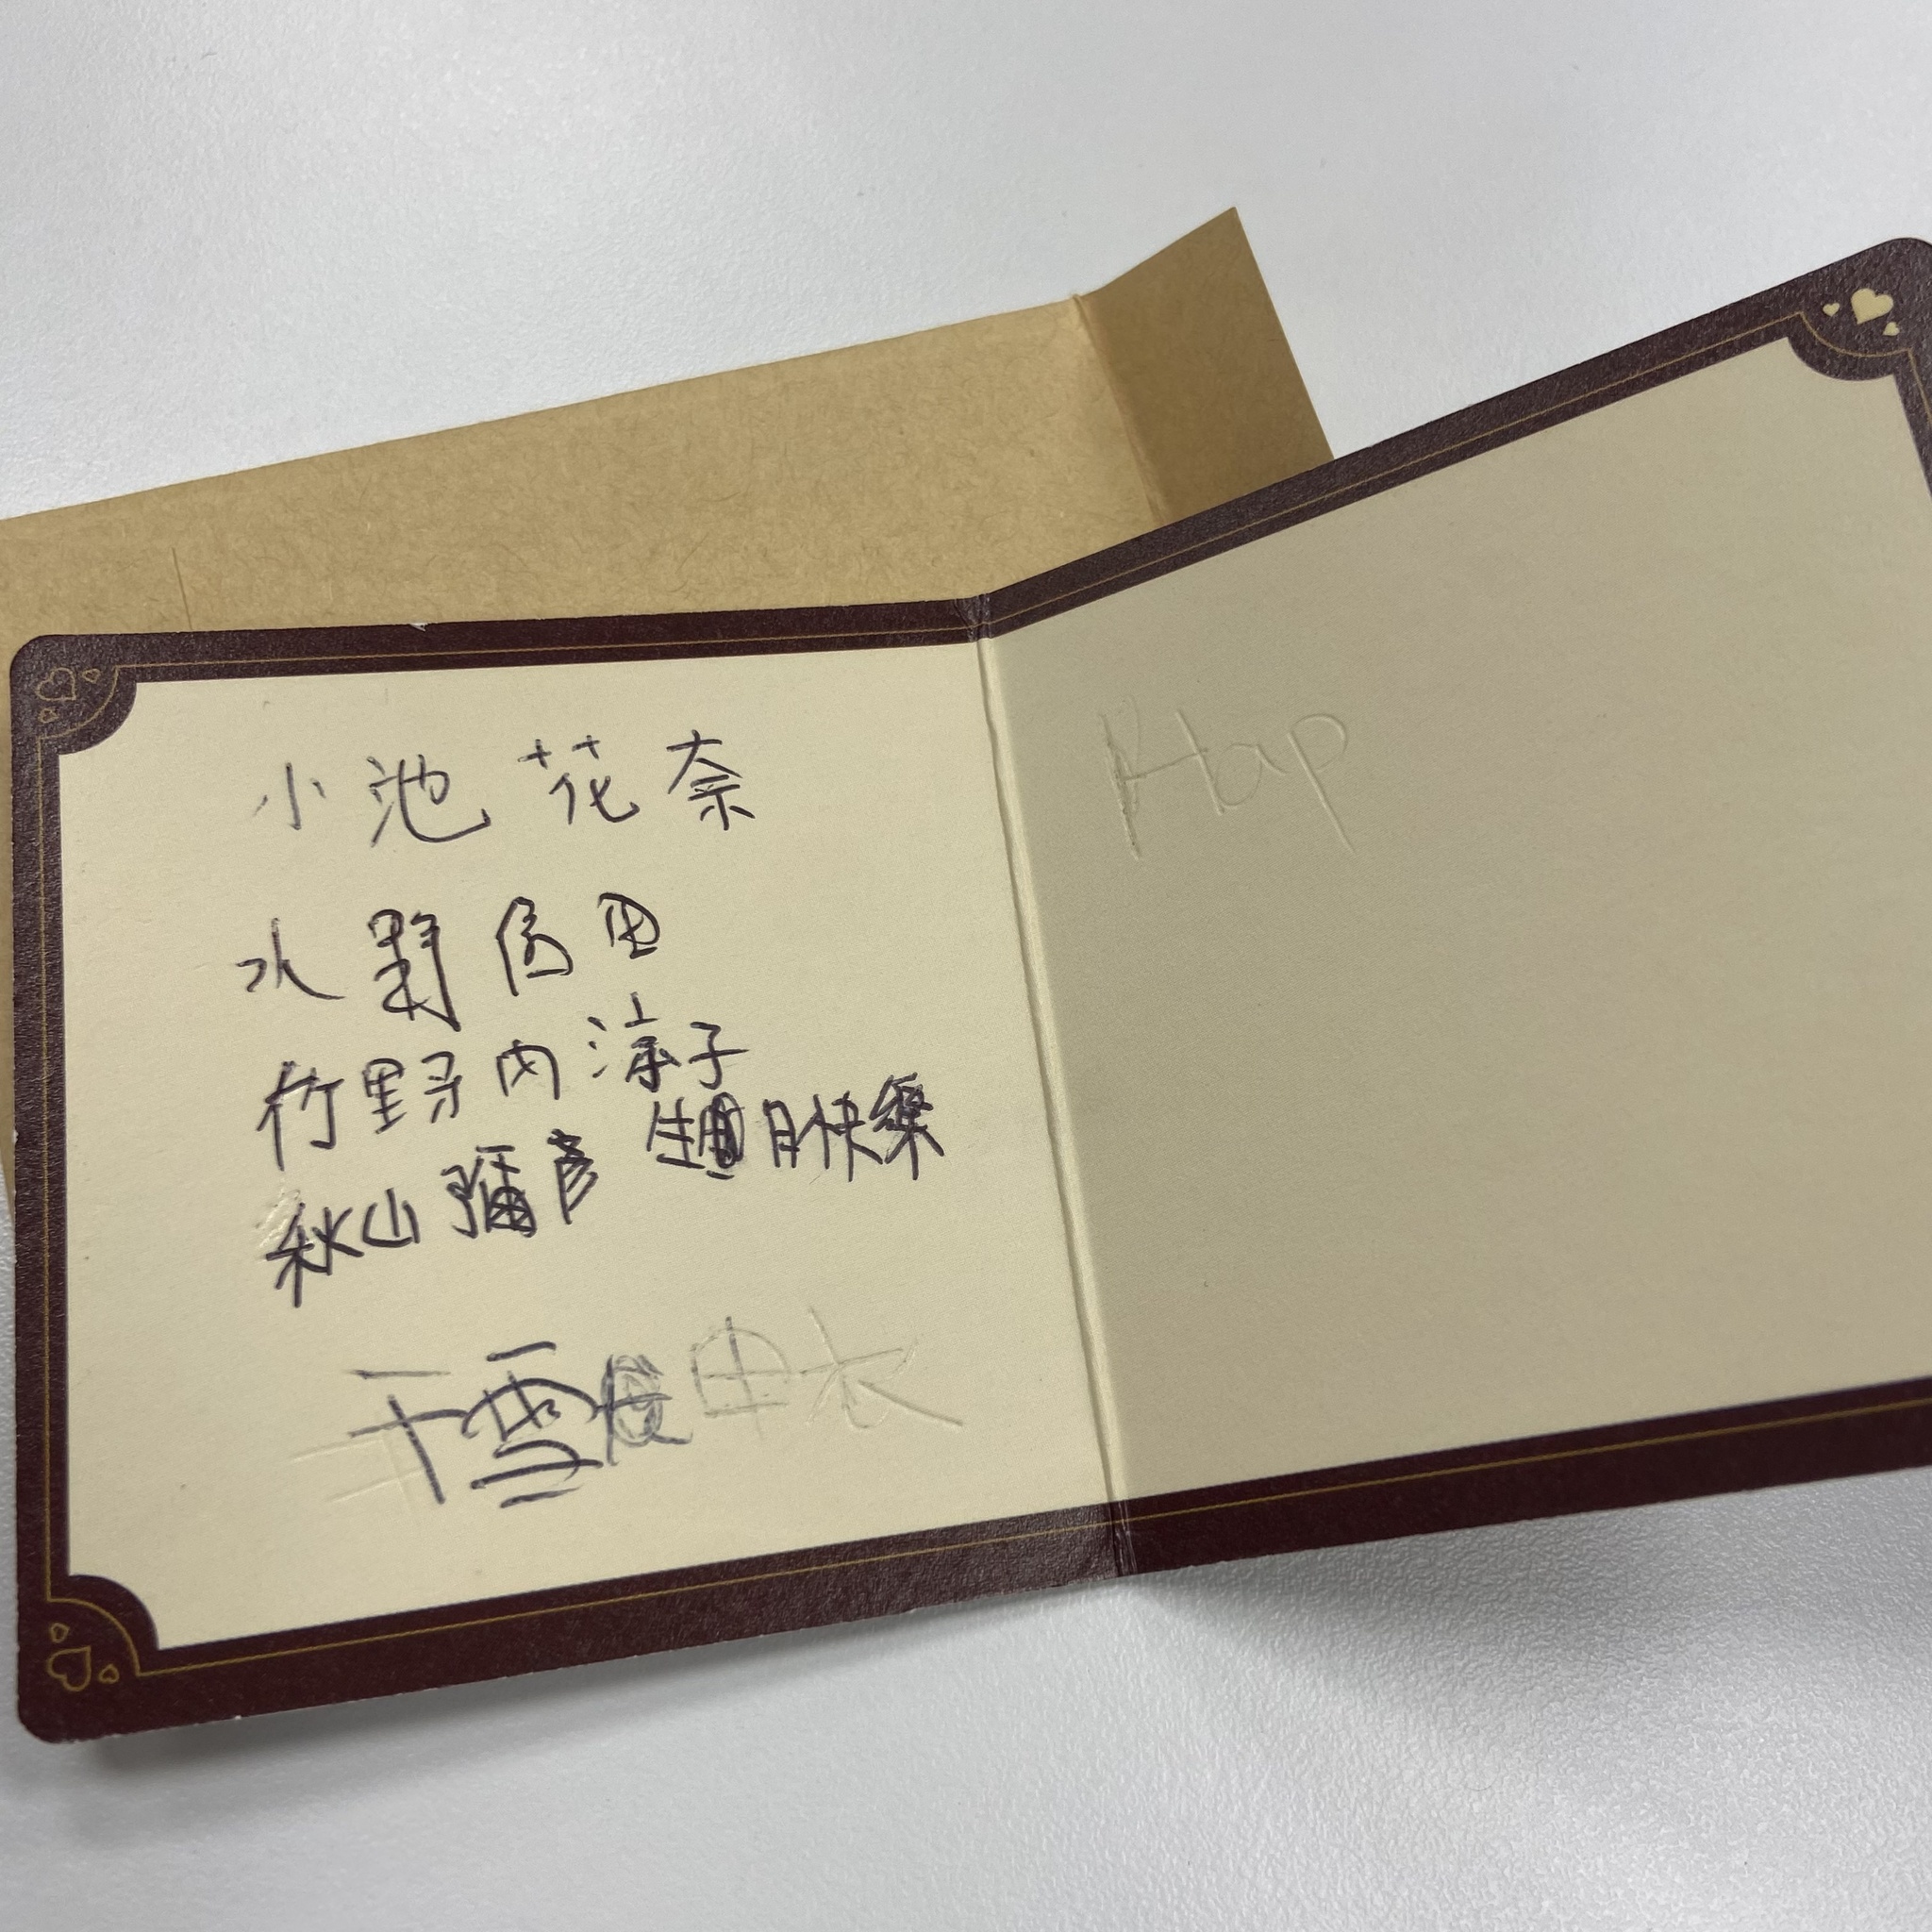 小池 花奈
水野
竹野内 涼子
生日快樂
秋山 彌彥
千雪 由衣
Hap